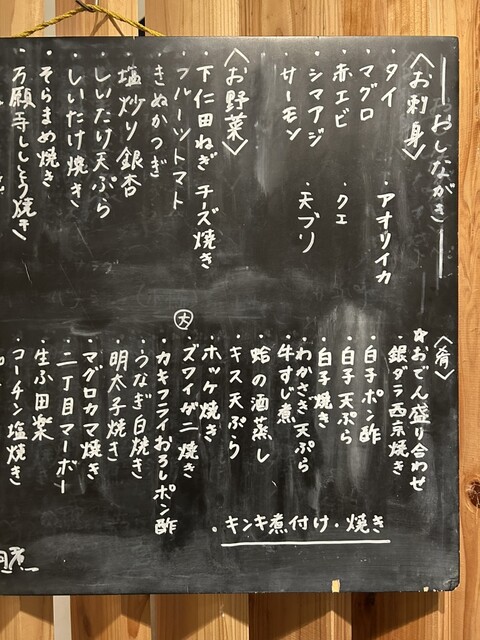 おしながき
〈お刺身〉
・タイ
・マグロ
・赤エビ
・シマアジ
・サーモン
・アオリイカ
・クエ
・天ブリ
〈お野菜〉
・下仁田ねぎ チーズ焼き
・フルーツトマト
・きぬかつぎ
・塩炒り銀杏
・しいたけ天ぷら
・しいたけ焼き
・そらまめ焼き
・万願寺ししとう焼き
〈肴〉
☆おでん盛り合わせ
・銀ダラ西京焼き
・白子ポン酢
・白子天ぷら
・白子焼き
・わかさぎ天ぷら
・牛すじ煮
・蛤の酒蒸し
・キス天ぷら
・ホッケ焼き
大
・ズワイガニ焼き
・カキフライおろしポン酢
・うなぎ白焼き
・明太子焼き
・マグロカマ焼き
・二丁目マーボー
・生ふ田楽
・コーチン塩焼き
・キンキ煮付け・焼き